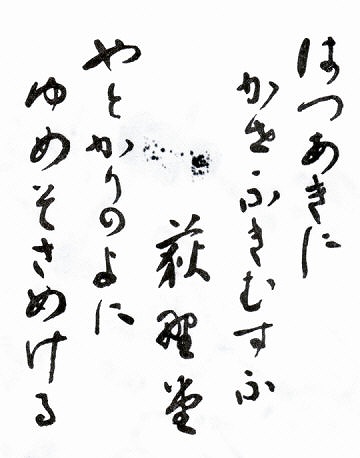 はつあきに
かせふきむすふ
荻野堂
やとかりのよに
ゆめそさめける